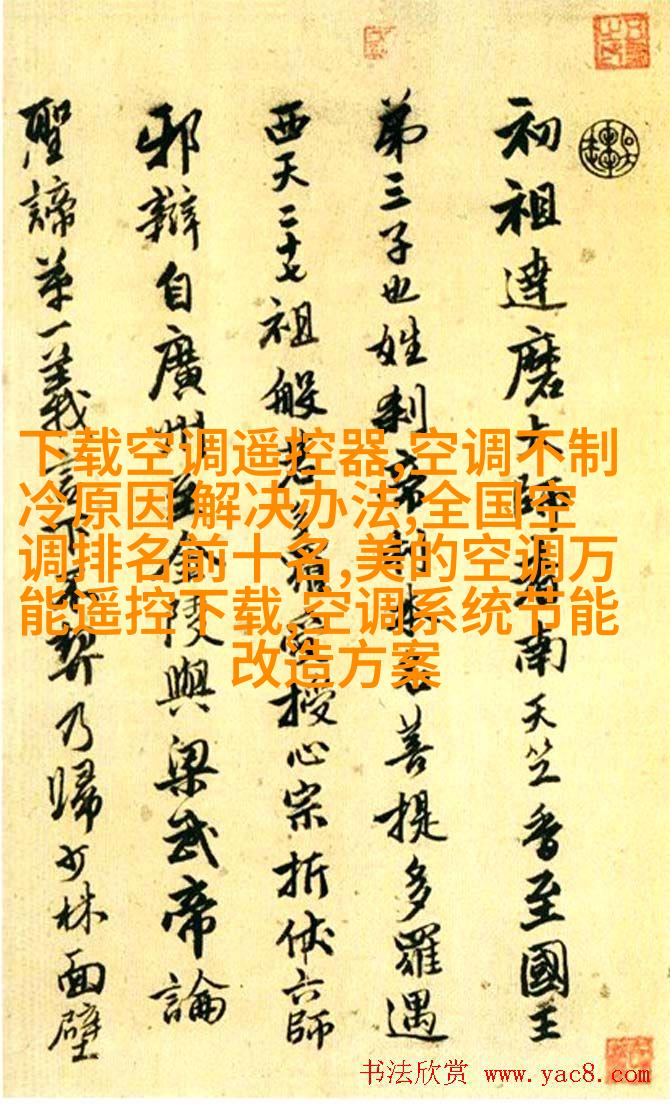 初祖達磨大師者南天竺香至國王
第三子也姓刹帝利本名菩提多羅遇
西天二十七祖般若多羅密授心宗折伏六師
邪辯自廣州至金陵與梁武帝論
聖諦第一義言下不契乃歸少林面壁
下载空调遥控器,空调不制
冷原因 解决办法,全国空
调排名前十名,美的空调万
能遥控下载,空调系统节能
改造方案
书法欣赏 www.yac8.com